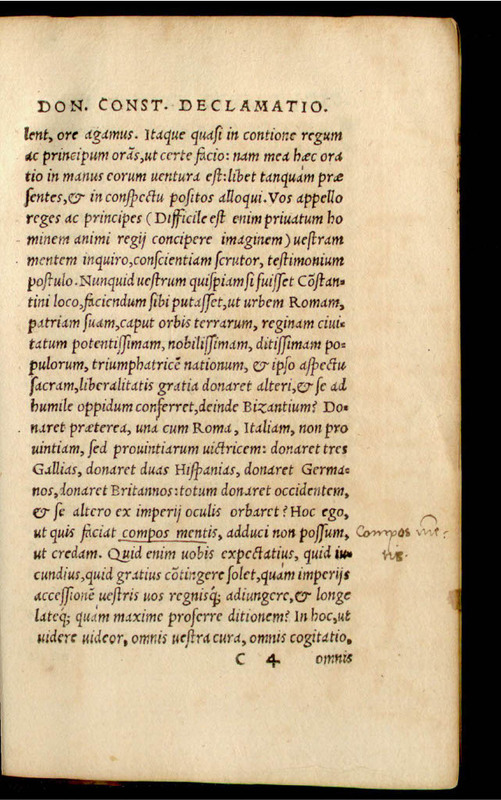 DON. CONST. DECLAMATIO.
lent, ore agamus. Itaque quasi in contione regum
ac principum orãs, ut certe facio: nam mea hæc ora
tio in manus eorum uentura est: libet tanquám præ
sentes, & in conspectu positos alloqui. Vos appello
reges ac principes (Difficile est enim priuatum ho
minem animi regij concipere imaginem) uestram
mentem inquiro, conscientiam scrutor, testimonium
postulo. Nunquid uestrum quispiam si fuisset Cõstan-
tini loco, faciendum sibi putasset, ut urbem Romam,
patriam suam, caput orbis terrarum, reginam ciui-
tatum potentissimam, nobilissimam, ditissimam po-
pulorum, triumphatricẽ nationum, & ipso aspectu
sacram, liberalitatis gratia donaret alteri, & se ad
humile oppidum conferret, deinde Bizantium? Do-
naret præterea, una cum Roma, Italiam, non pro
uintiam, sed prouintiarum uictricem: donaret tres
Gallias, donaret duas Hispanias, donaret Germa-
nos, donaret Britannos: totum donaret occidentem,
& se altero ex imperij oculis orbaret? Hoc ego,
ut quis faciat compos mentis, adduci non possum,
ut credam. Quid enim uobis expectatius, quid iu-
cundius, quid gratius cõtingere solet, quám imperijs
accessionẽ uestris uos regnisq; adiungere, & longe
lateq; quám maxime proferre ditionem? In hoc, ut
uidere uideor, omnis uestra cura, omnis cogitatio,
C 4 omnis
Compos mẽ-
tis.